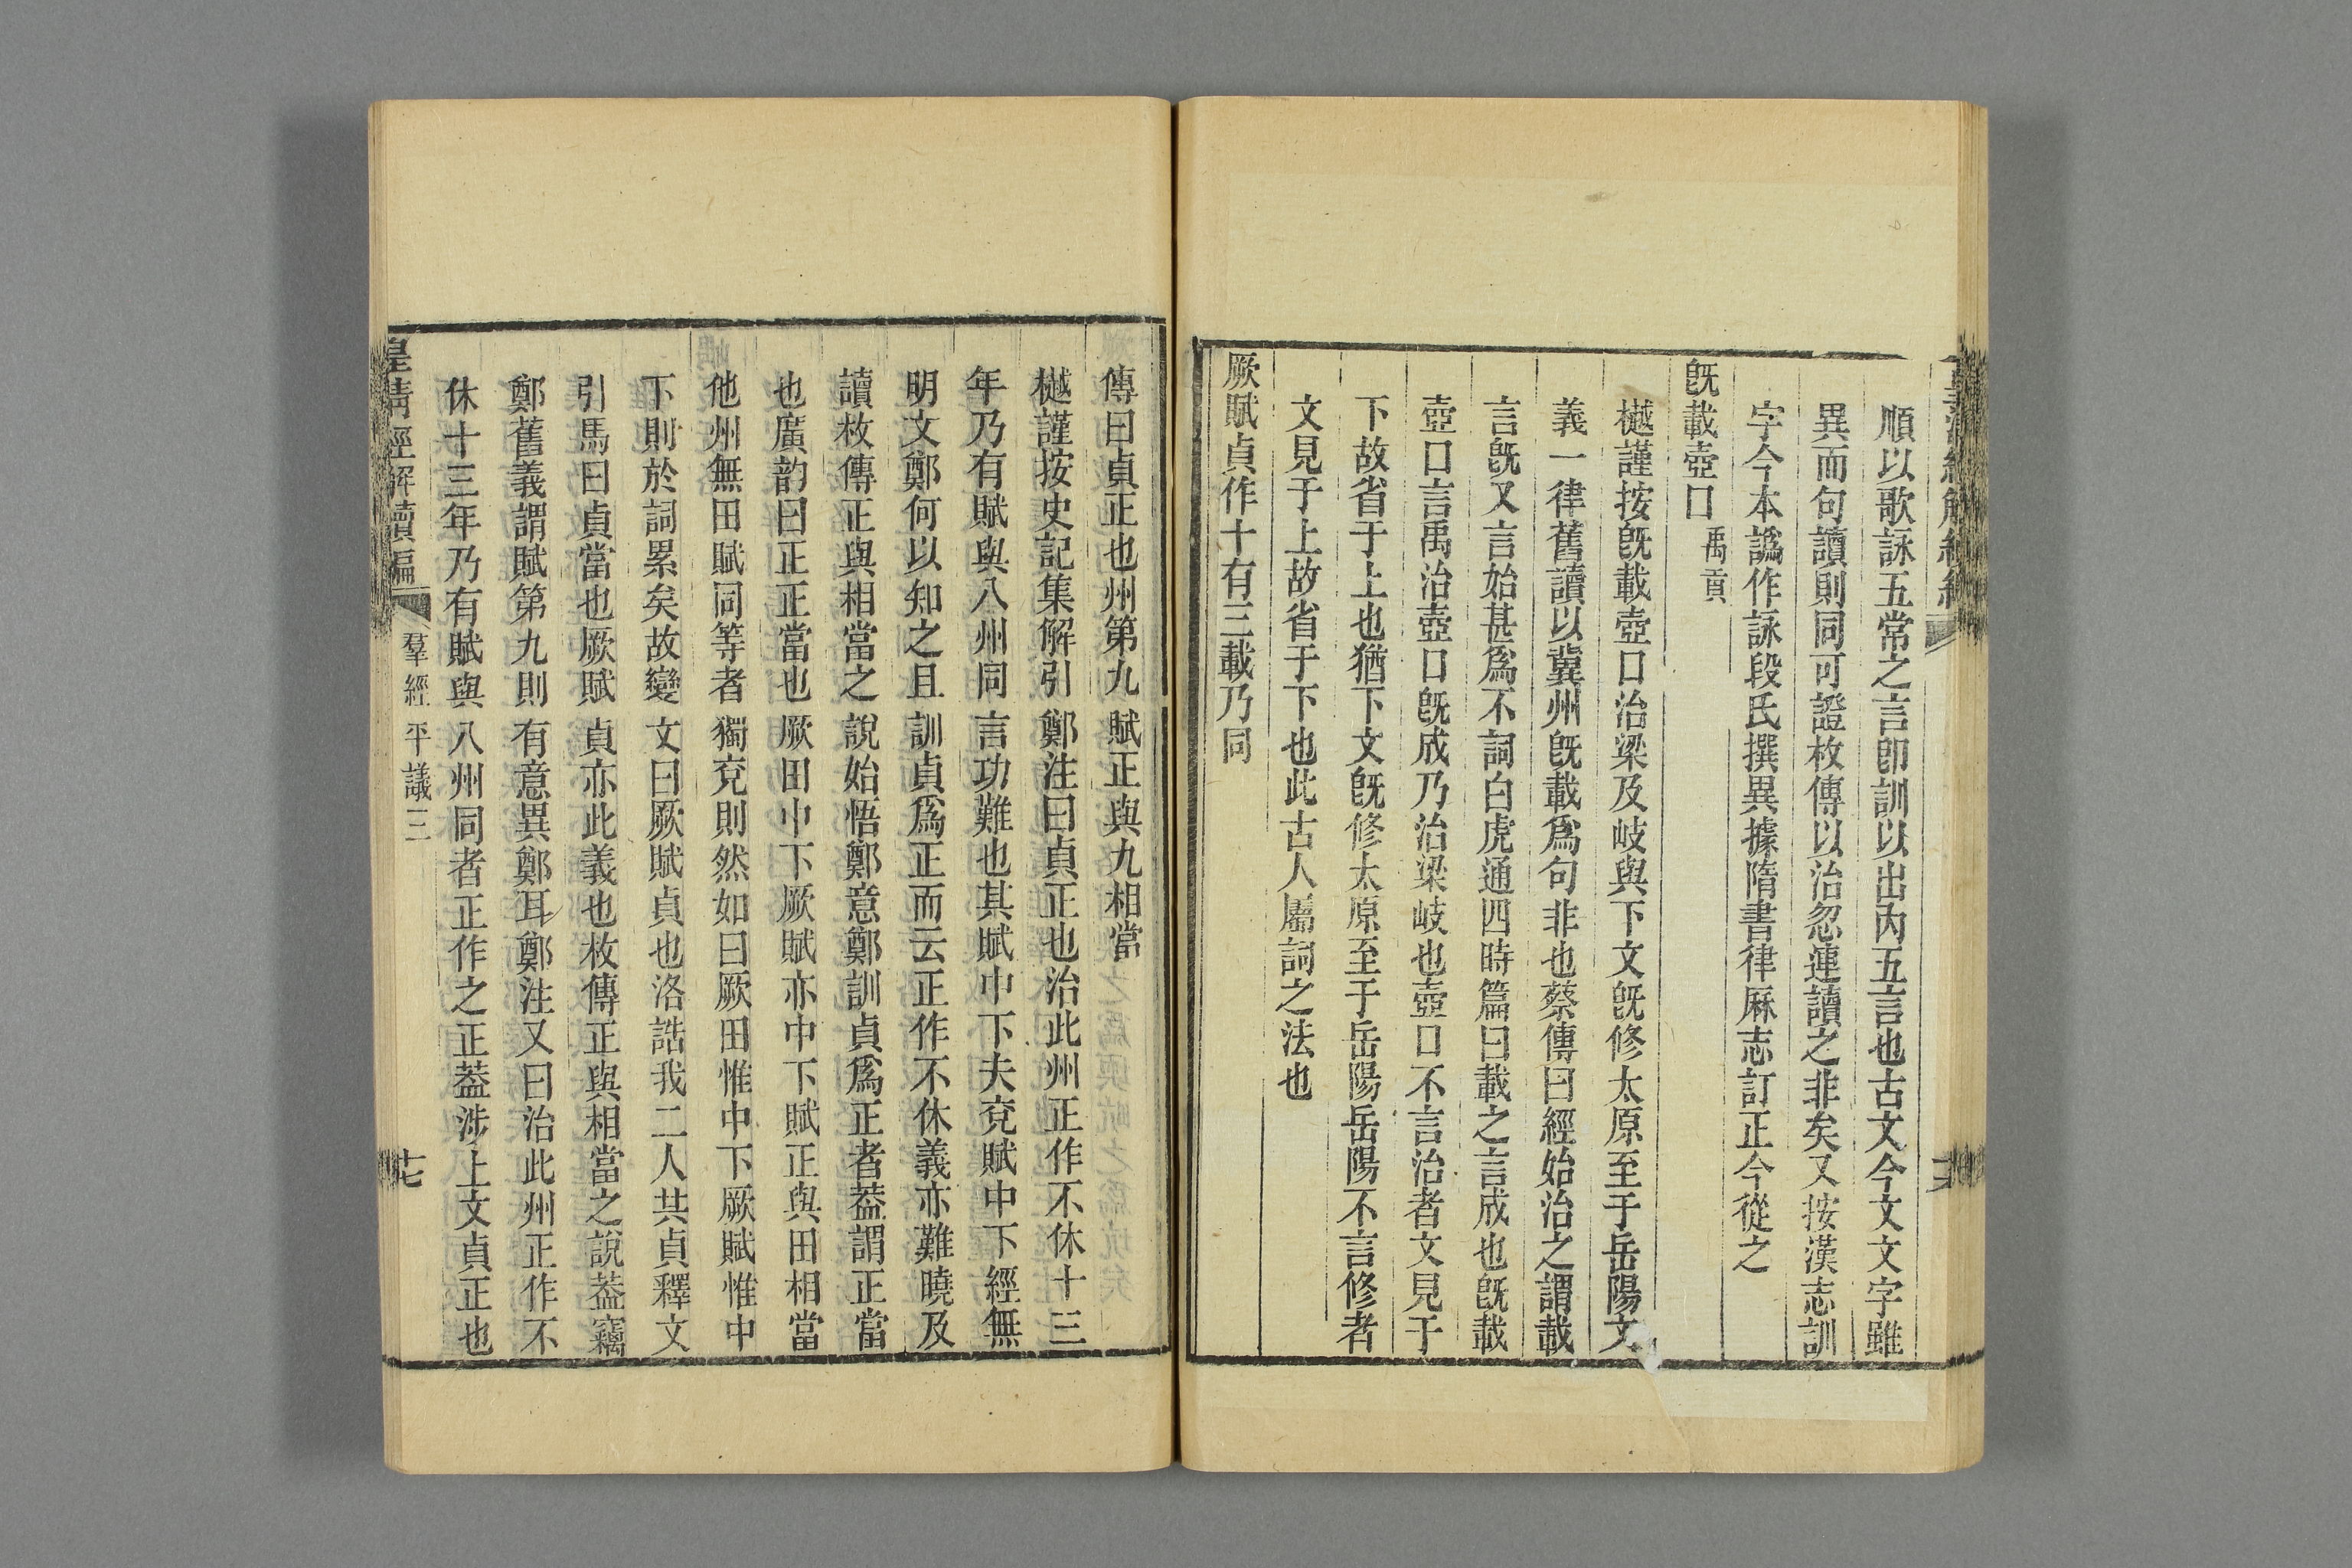 順以歌詠五常之言卽訓以出內五言也古文今文文字雖
異而句讀則同可證枚傳以治忽連讀之非矣又按漢志訓
字今本譌作詠段氏撰異據隋書律厤志訂正今從之
旣載壺口禹貢
樾謹按旣載壺口治梁及岐與下文旣修太原至于岳陽文
義一律舊讀以冀州旣載爲句非也蔡傳曰經始治之謂載
言旣又言始甚爲不詞白虎通四時篇曰載之言成也旣載
壺口言禹治壺口旣成乃治梁岐也壺口不言治者文見于
下故省于上也猶下文旣修太原至于岳陽岳陽不言修者
文見于上故省于下也此古人屬詞之法也
厥賦貞作十有三載乃同
傳曰貞正也州第九賦正與九相當
樾謹按史記集解引鄭注曰貞正也治此州正作不休十三
年乃有賦與八州同言功難也其賦中下夫兗賦中下經無
明文鄭何以知之且訓貞爲正而云正作不休義亦難曉及
讀枚傳正與相當之說始悟鄭意鄭訓貞爲正者葢謂正當
也廣韵曰正正當也厥田中下厥賦亦中下賦正與田相當
他州無田賦同等者獨兗則然如曰厥田惟中下厥賦惟中
下則於詞累矣故變文曰厥賦貞也洛誥我二人共貞釋文
引馬曰貞當也厥賦貞亦此義也枚傳正與相當之說葢竊
鄭舊義謂賦第九則有意異鄭耳鄭注又曰治此州正作不
休十三年乃有賦與八州同者正作之正葢涉上文貞正也
皇清經解續編
羣經平議三
十七